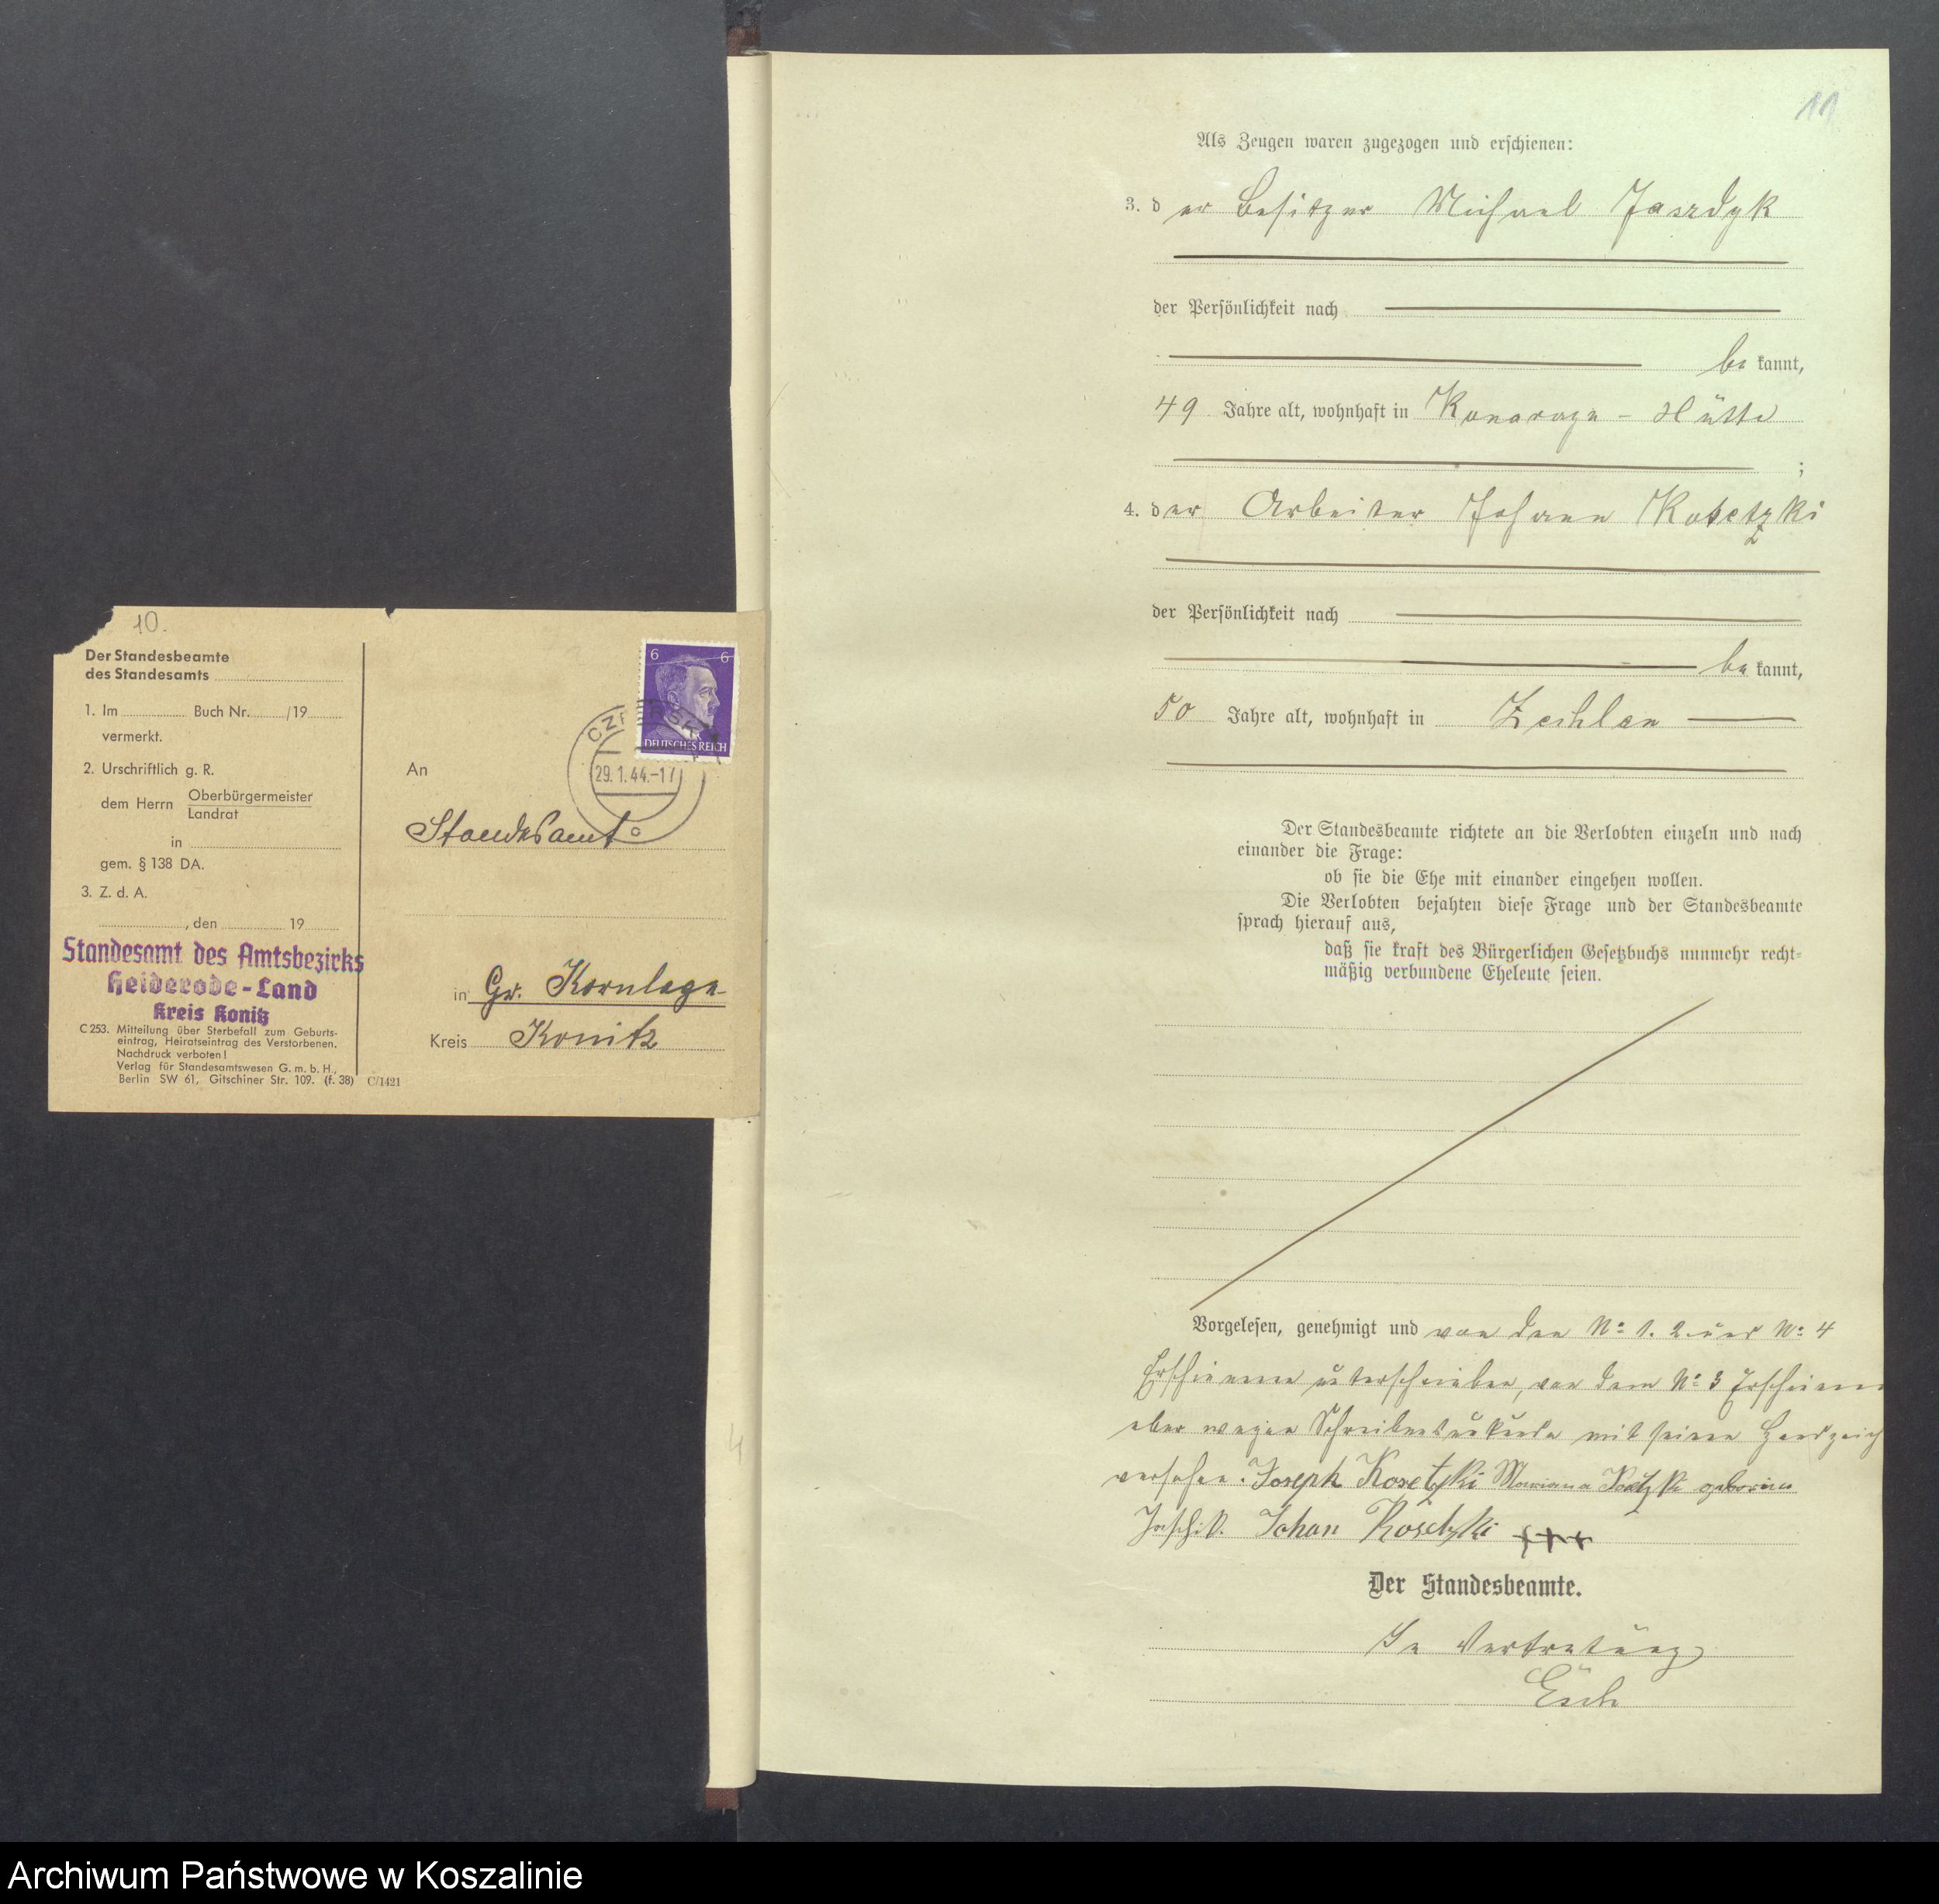 10.
Der Standesbeamte
des Standesamts
1. Im Buch Nr. /19
vermerkt.
2. Urschriftlich g. R.
dem Herrn Oberbürgermeister
Landrat
in
gem. § 138 DA.
3. Z. d. A.
, den 19
Standesamt des Amtsbezirks
Heiderode-Land
Kreis Konitz
C 253. Mitteilung über Sterbefall zum Geburts-
eintrag, Heiratseintrag des Verstorbenen.
Nachdruck verboten!
Verlag für Standesamtswesen G. m. b. H.,
Berlin SW 61, Gitschiner Str. 109. (f. 38) C/1421
6 6
DEUTSCHES REICH
29.1.44.-17
c
An
Standesamt
in Gr. Kornlage
Kreis Konitz
11
Als Zeugen waren zugezogen und erschienen:
3. der Besitzer Michael
der Persönlichkeit nach
be kannt,
49 Jahre alt, wohnhaft in Hütte
;
4. der Arbeiter Johann
der Persönlichkeit nach
be kannt,
50 Jahre alt, wohnhaft in Zechlau
Der Standesbeamte richtete an die Verlobten einzeln und nach
einander die Frage:
ob sie die Ehe mit einander eingehen wollen.
Die Verlobten bejahten diese Frage und der Standesbeamte
sprach hierauf aus,
daß sie kraft des Bürgerlichen Gesetzbuchs nunmehr recht=
mäßig verbundene Eheleute seien.
Vorgelesen, genehmigt und von den No 1. 2 und No 4
Erschienenen unterschrieben, von dem No 3 Erschienenen
aber wegen Schreibensunkunde mit seinem Handzeich
versehen. Joseph Kosetzki Marianna geborene
Johan Kosetzki +++
Der Standesbeamte.
In Vertretung
Esch
4
Archiwum Państwowe w Koszalinie